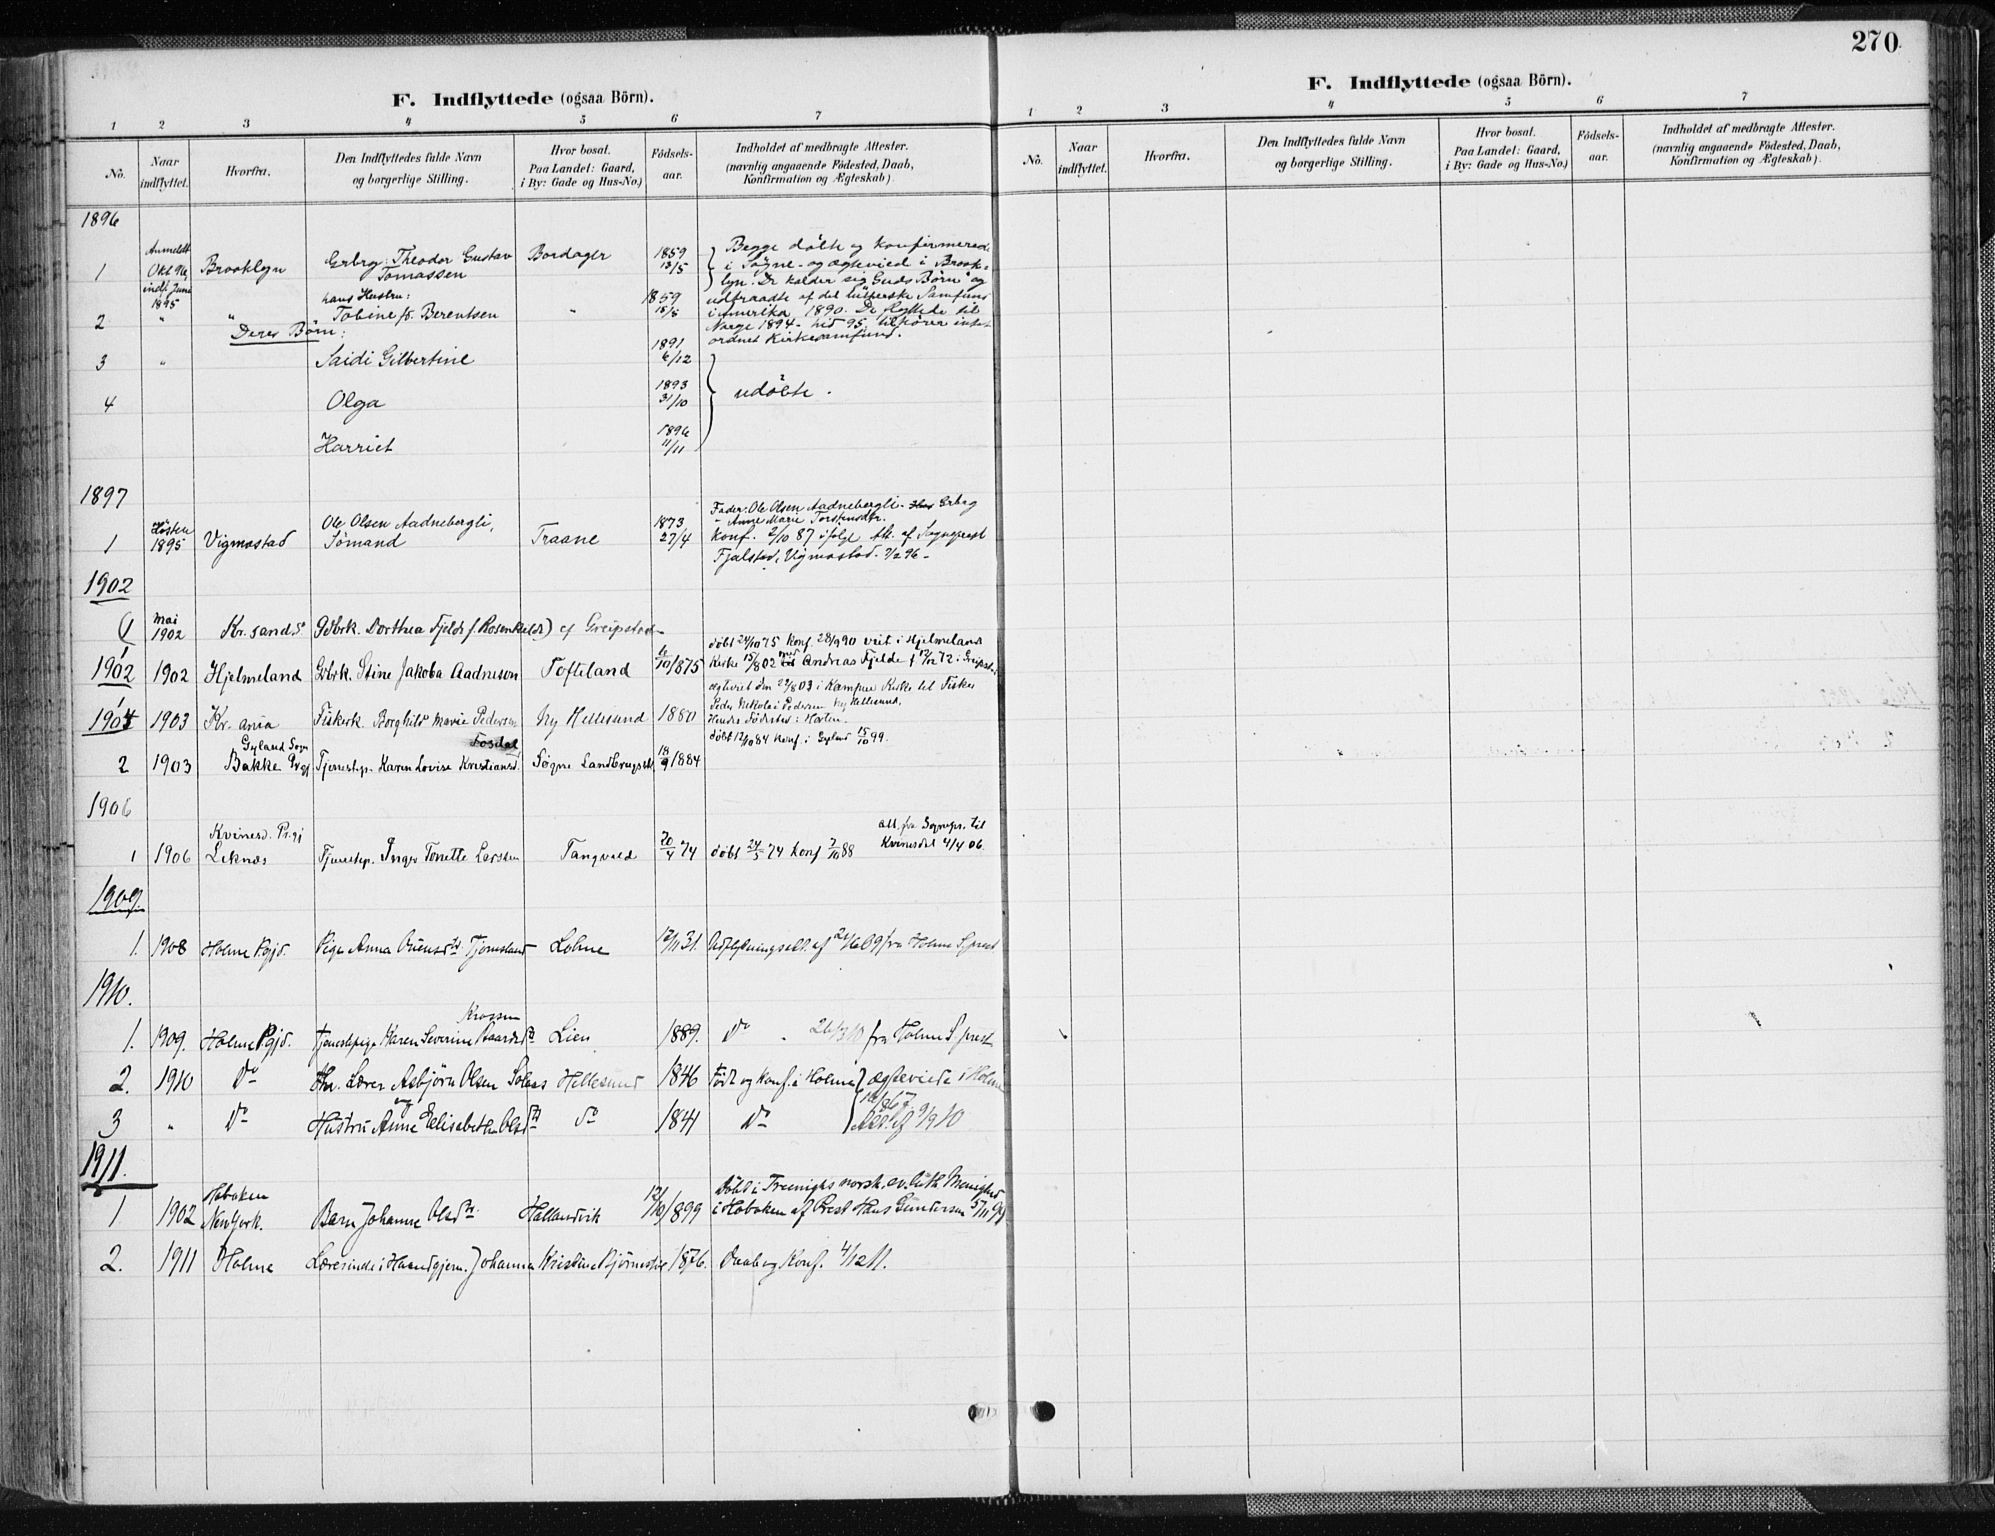 270
F. Indflyttede (ogsaa Börn).
1 2 3 4 5 6 7
No. Naar indflyttet. Hvorfra. Den Indflyttedes fulde Navn og borgerlige Stilling. Hvor bosat. Paa Landet: Gaard, i By: Gade og Hus-No.) Födsels-aar. Indholdet af medbragte Attester. (navnlig angaaende Födested, Daab, Konfirmation og Ægteskab)
1896
1 Anmeldt Okt 96 indfl. Juni 1895 Brooklyn Grbrg. Theodor Gustav Tomassen Bordager 1859 13/5 Begge døbte og konfirmerede
i Søgne - og ægteviede i Brook-
lyn. De kalder sig Guds Børn og
hans Hustru:
udtraadte af det lutherske Samfund
2 " " Tobine f. Berentsen " 1859 15/5 i Amerika 1890. De flyttede til
Norge 1894 - hid 95, tilhører intet
Deres Børn:
ordnet Kirkesamfund.
3 " Saidi Gilbertine 1891 6/12
4 Olga 1893 31/10 udøbte.
Harriet 1896 11/11
1897
1 Høsten 1895 Vigmostad Ole Olsen Aadnebergli, Sømand Traane 1873 27/4 Fader: Ole Olsen Aadnebergli - Grbrg
- Anne Marie Torstensdtr.
Konf. 2/10 87 ifølge Att. af Sogneprest
Fjalstad, Vigmostad. 7/2 96 -
1902
1 Mai 1902 Kr.sand S. Gdbrk. Dorthea Fjelde f. Rosenkilde) af Greipstad
1902 1902 Hjelmeland Gdbrk. Stine Jakoba Aadneson Tofteland 6/10 1875 døbt 24/10 75 Konf. 28/9 90 viet i Hjelmeland
Kirke 15/8 02 med Andreas Fjelde f 12/12 72 i Greipstad
1904
1 1903 Kr.ania Fiskerk. Borghild Marie Pedersen Ny Hellesund 1880 ægteviet den 22/8 03 i Kampen Kirke til Fisker
Peder Nikolai Pedersen Ny Hellesund.
Hendes Fødested: Horten.
2 1903 Gyland Sogn Bakke Prgj Tjenestep. Karen Lovise Kristiansd. Fosdal Søgne Landbrugssk. 18/9 1884 døbt 12/10 84 Konf. i Gyland 15/10 99.
1906
1 1906 Kvinesd. Pr.gj Leknæs Tjenestep. Inger Tonette Larsen Tangvald 20/4 74 døbt 24/5 74 Konf 7/10 88 att. fra Sognepr. til Kvinesdal 4/4 06.
1909.
1. 1908 Holme Pgjd. Pige Anna Ånensdtr Tjomsland Lohne 12/11 31. Udflytningsatt. af 21/6 09 fra Holme Sprest
1910.
1. 1909. Holme Pgjd. Tjenestepige Karen Severine Krossen Lien 1889. Do 26/3 10 fra Holme S.prest
2. 1910 Do Lærer Asbjörn Olsen Solaas Hellesund 1846 Födt og konf. i Holme ægteviede i Holme
3 " Do og Hustru Anne Elisabeth Olsdtr do 1841 Do 1867. Att. af 9/9 10
1911.
1 1902 Hoboken New York. Barn Johanne Olsdtr. Hallandvik 12/10 1899 Döbt i Treenigh. norsk. ev. luth Menighed
i Hoboken af Prest Hans Gundersen 5/11 99
2. 1911 Holme Lærerinde i Haandgjern. Johanna Kristine Bjørnestøl 1876. Daab og Konf. 4/12 11.
F. Indflyttede (ogsaa Börn).
1 2 3 4 5 6 7
No. Naar indflyttet. Hvorfra. Den Indflyttedes fulde Navn og borgerlige Stilling. Hvor bosat. Paa Landet: Gaard, i By: Gade og Hus-No.) Födsels-aar. Indholdet af medbragte Attester. (navnlig angaaende Födested, Daab, Konfirmation og Ægteskab)